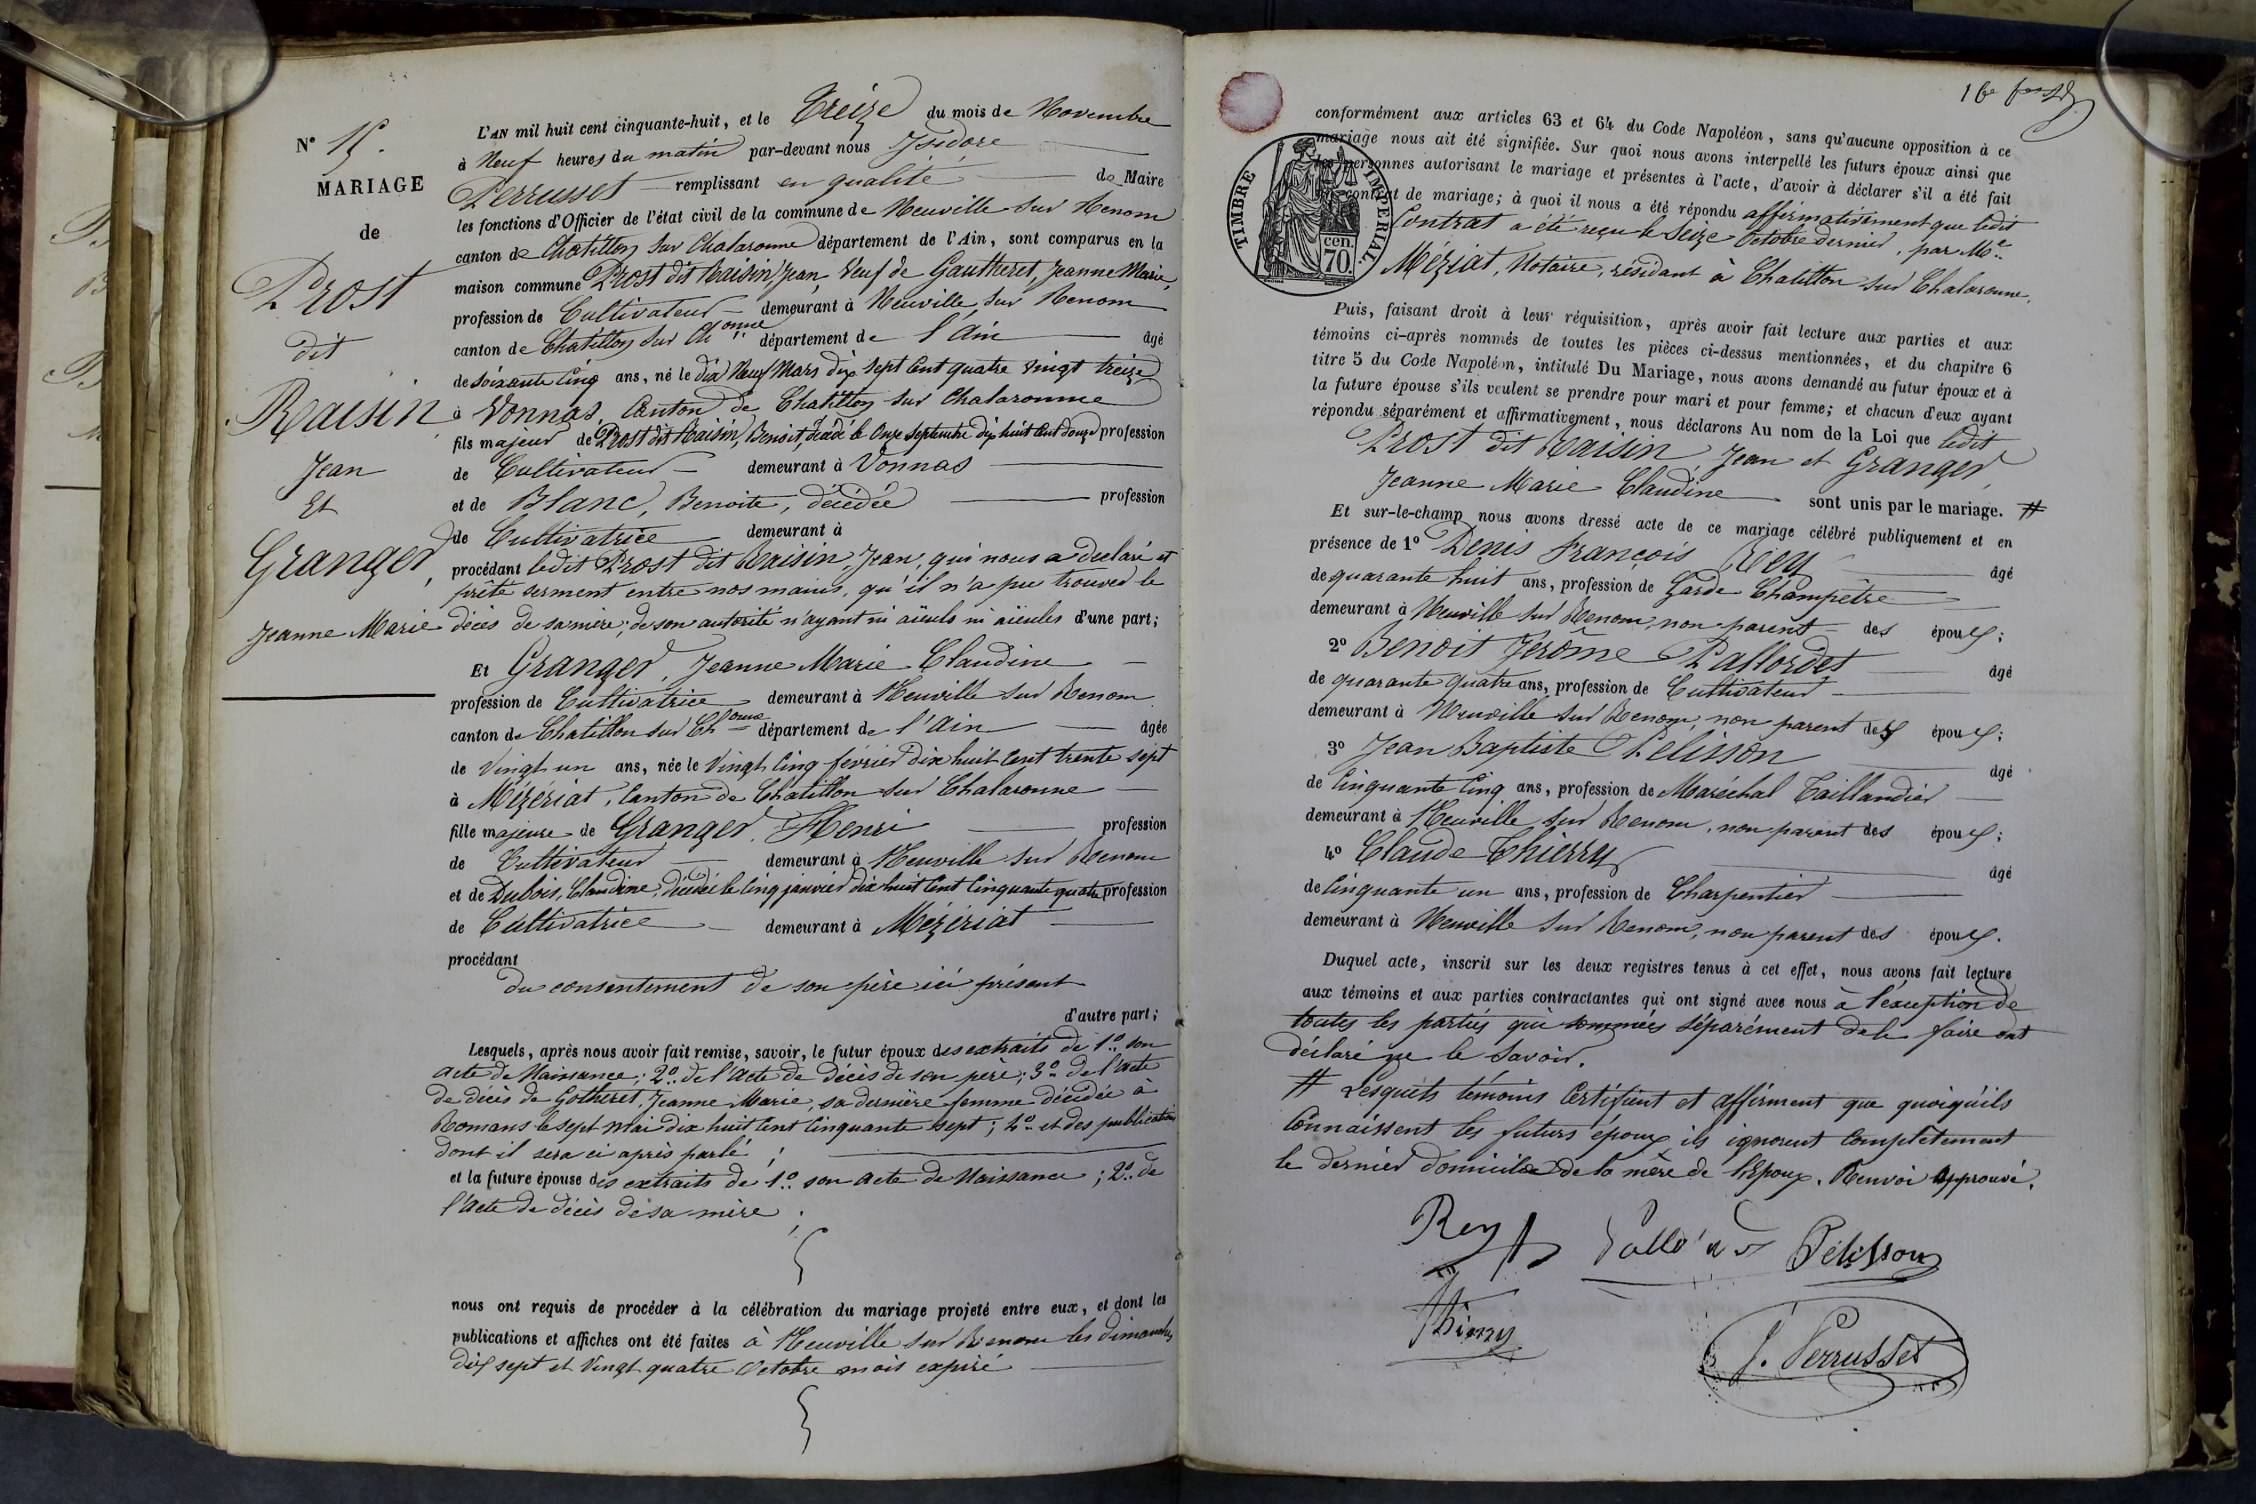 N° 15.
MARIAGE
de
Prost
dit
Raisin
Jean
Et
Granger,
Jeanne Marie
L'AN mil huit cent cinquante-huit, et le Treize du mois de Novembre
à Neuf heures du matin par-devant nous Isidore
Perrusset remplissant en qualité de Maire
les fonctions d'Officier de l'état civil de la commune de Neuville sur Renom
canton de Chatillon sur Chalaronne département de l'Ain, sont comparus en la
maison commune Prost dit Raisin, Jean, Veuf de Gautheret, Jeanne Marie,
profession de Cultivateur demeurant à Neuville sur Renom
canton de Chatillon sur Chonne département de l'Ain âgé
de soixante Cinq ans, né le dix Neuf Mars dix sept Cent quatre vingt treize
à Vonnas, Canton de Chatillon sur Chalaronne
fils majeur de Prost dit Raisin, Benoit, décédé le Onze Septembre dix huit Cent douze profession
de Cultivateur demeurant à Vonnas
et de Blanc, Benoite, décédée profession
de Cultivatrice demeurant à
procédant ledit Prost dit Raisin, Jean, qui nous a déclaré et
prêté serment entre nos mains, qu'il n'a pu trouver le
décès de sa mère; de son autorité n'ayant ni aïeuls ni aïeules d'une part;
Et Granger, Jeanne Marie Claudine
profession de Cultivatrice demeurant à Neuville sur Renom
canton de Chatillon sur Chonne département de l'Ain âgée
de Vingt un ans, née le Vingt Cinq février dix huit Cent trente sept
à Mézériat, Canton de Chatillon sur Chalaronne
fille majeure de Granger, Henri profession
de Cultivateur demeurant à Neuville sur Renom
et de Dubois, Claudine, décédée le Cinq janvier dix huit Cent Cinquante quatre profession
de Cultivatrice demeurant à Mézériat
procédant
du consentement de son père ici présent
d'autre part;
Lesquels, après nous avoir fait remise, savoir, le futur époux des extraits de 1° son
acte de Naissance; 2° de l'acte de décès de son père; 3° de l'acte
de décès de Gotheret, Jeanne Marie, sa dernière femme décédée à
Romans le sept Mai dix huit Cent Cinquante sept; 4° et des publications
dont il sera ci après parlé;
et la future épouse des extraits de 1° son acte de Naissance; 2° de
l'acte de décès de sa mère;
nous ont requis de procéder à la célébration du mariage projeté entre eux, et dont les
publications et affiches ont été faites à Neuville sur Renom les dimanches
dix sept et Vingt quatre Octobre mois expiré
conformément aux articles 63 et 64 du Code Napoléon, sans qu'aucune opposition à ce
mariage nous ait été signifiée. Sur quoi nous avons interpellé les futurs époux ainsi que
les personnes autorisant le mariage et présentes à l'acte, d'avoir à déclarer s'il a été fait
contrat de mariage; à quoi il nous a été répondu affirmativement que ledit
Contrat a été reçu le Seize Octobre dernier, par Me
Méziat, Notaire, résidant à Chatillon sur Chalaronne.
TIMBRE IMPERIAL
cen. 70.
Puis, faisant droit à leur réquisition, après avoir fait lecture aux parties et aux
témoins ci-après nommés de toutes les pièces ci-dessus mentionnées, et du chapitre 6
titre 5 du Code Napoléon, intitulé Du Mariage, nous avons demandé au futur époux et à
la future épouse s'ils veulent se prendre pour mari et pour femme; et chacun d'eux ayant
répondu séparément et affirmativement, nous déclarons Au nom de la Loi que ledit
Prost dit Raisin, Jean et Granger,
Jeanne Marie Claudine sont unis par le mariage. #
Et sur-le-champ nous avons dressé acte de ce mariage célébré publiquement et en
présence de 1° Denis François Rey âgé
de quarante huit ans, profession de Garde Champêtre
demeurant à Neuville sur Renom, non parent des époux;
2° Benoit Jérôme Pallordet âgé
de quarante quatre ans, profession de Cultivateur
demeurant à Neuville sur Renom, non parent des époux;
3° Jean Baptiste Pelisson âgé
de Cinquante Cinq ans, profession de Maréchal Taillandier
demeurant à Neuville sur Renom, non parent des époux;
4° Claude Thierry âgé
de Cinquante un ans, profession de Charpentier
demeurant à Neuville sur Renom, non parent des époux.
Duquel acte, inscrit sur les deux registres tenus à cet effet, nous avons fait lecture
aux témoins et aux parties contractantes qui ont signé avec nous à l'exception de
toutes les parties qui sommées séparément de le faire ont
déclaré ne le savoir.
# Lesquels témoins Certifient et affirment que quoiqu'ils
Connaissent les futurs époux ils ignorent Complètement
le dernier domicile de la mère de l'Epoux. Renvoi approuvé.
Rey Pélisson
Thierry
J. Perrusset